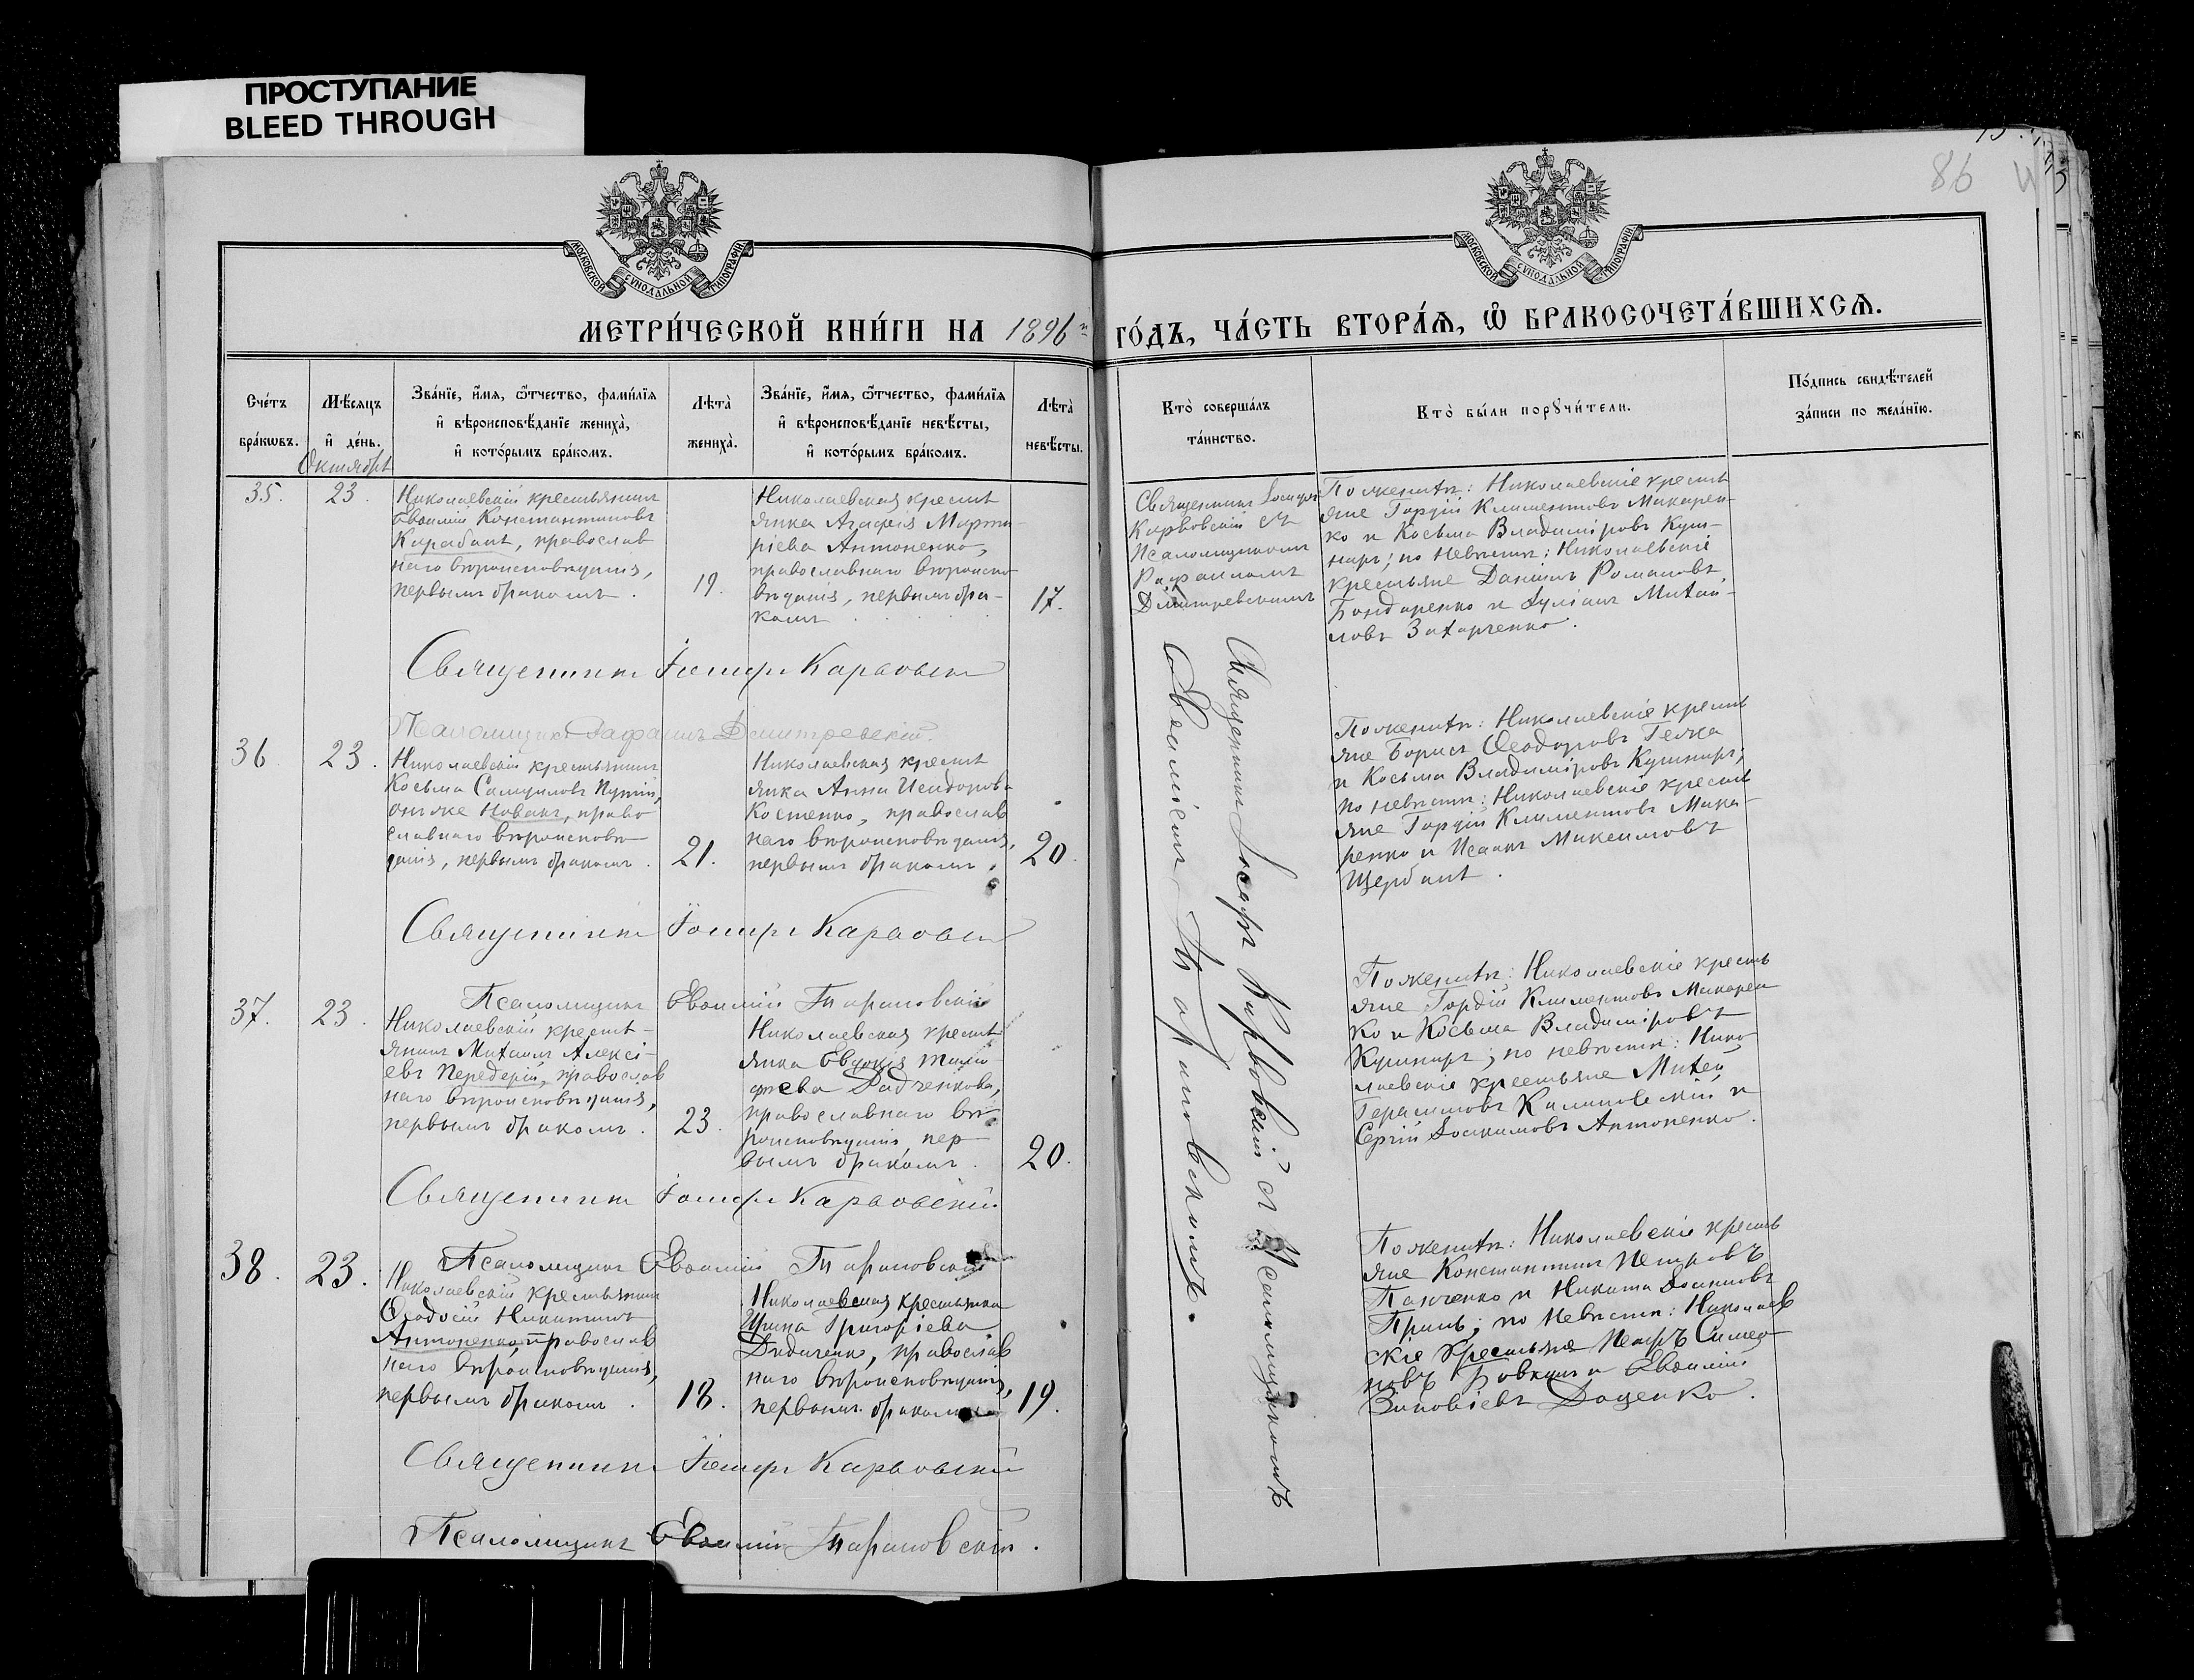 ПРОСТУПАНИЕ
BLEED THROUGH
86
МОСКОВСКОЙ СѴНОДАЛЬНОЙ ТИПОГРАФІИ
МОСКОВСКОЙ СѴНОДАЛЬНОЙ ТИПОГРАФІИ
МЕТРИ́ЧЕСКОЙ КНИ́ГИ НА 1896 й ГО́ДЪ, ЧА́СТЬ ВТОРА́Ѧ, Ѡ БРАКОСОЧЕТА́ВШИХСѦ.
Сче́тъ бра́кѡвъ.
Мѣ́сяцъ и҆ де́нь.
Зва́нїе, и҆́мя, ѻ҆́тчество, фами́лїя
и҆ вѣроисповѣ́данїе жениха̀,
и҆ кото́рымъ бра́комъ.
Лѣта̀ жениха̀.
Зва́нїе, и҆́мя, ѻ҆́тчество, фами́лїя
и҆ вѣроисповѣ́данїе невѣ́сты,
и҆ кото́рымъ бра́комъ.
Лѣта̀ невѣ́сты.
Кто̀ соверша́лъ
та́инство.
Кто̀ бы́ли порꙋчи́тели.
По́дпись свидѣ́телей
за́писи по жела́нїю.
Октябрь
35.
23.
Николаевскій крестьянинъ
Евѳимій Константиновъ
Карабанъ, православ
наго вѣроисповѣданія,
первымъ бракомъ.
19.
Николаевская крестъ
янка Агафія Марти-
ріева Антоненко,
православнаго вѣроиспо-
вѣданія, первымъ бра-
комъ
17.
Священникъ Іосифъ
Карвовскій съ
Псаломщикомъ
Рафаиломъ
Дмитревскимъ
По женихѣ: Николаевскіе кресть
яне Гордій Климентовъ Макарен-
ко и Косьма Владиміровъ Куш-
ниръ; по невѣстѣ: Николаевскіе
крестьяне Даніилъ Романовъ
Бондаренко и Іуліанъ Михаи-
ловъ Захарченко.
Священникъ Іосифъ Карвовскій
Псаломщикъ Рафаилъ Дмитревскій.
36
23.
Николаевскій крестьянинъ
Косьма Самуиловъ
онъ же Новакъ, право
славнаго вѣроисповѣ-
данія, первымъ бракомъ.
21.
Николаевская кресть
янка Анна Исидорова
Костенко, православ
наго вѣроисповѣданія,
первымъ бракомъ.
20.
По женихѣ: Николаевскіе кресть
яне Борисъ Ѳеодоровъ
и Косьма Владиміровъ Кушниръ;
по невѣстѣ: Николаевскіе кресть
яне Гордій Климентовъ Мака-
ренко и Исаакъ Максимовъ
Щербань.
Священникъ Іосифъ Карвовскій
Псаломщикъ Евѳимій Тарановскій
37.
23.
Николаевскій кресть-
янинъ Михаилъ Алексі-
евъ Передерій, православ
наго вѣроисповѣданія,
первымъ бракомъ.
23.
Николаевская кресть
янка Евдокія Тимо-
фѣева Радченкова,
православнаго вѣ-
роисповѣданія, пер
вымъ бракомъ.
20.
По женихѣ: Николаевскіе кресть
яне Гордій Климентовъ Макарен
ко и Косьма Владиміровъ
Кушниръ; по невѣстѣ: Нико
лаевскіе крестьяне Михей
Герасимовъ Калиновскій и
Сергій Іоакимовъ Антоненко.
Священникъ Іосифъ Карвовскій
Псаломщикъ Евѳимій Тарановскій
38.
23.
Николаевскій крестьянинъ
Ѳеодосій Никитинъ
Антоненко, православ
наго вѣроисповѣданія,
первымъ бракомъ.
18.
Николаевская крестьянка
Ирина Григоріева
Дидиченко, православ
наго вѣроисповѣданія,
первымъ бракомъ
19.
По женихѣ: Николаевскіе кресть
яне Константинъ Петровъ
Панченко и Никита
по невѣстѣ: Николаев
скіе крестьяне Петръ Симео-
новъ и Евѳимій
Зиновіевъ Доценко.
Священникъ Іосифъ Карвовскій
Псаломщикъ Евѳимій Тарановскій.
Священникъ Іосифъ Карвовскій съ Псаломщикомъ
Евѳиміемъ Тарановскимъ.